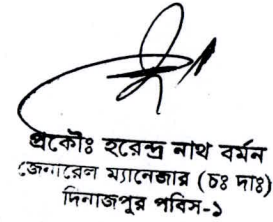 প্রকৌঃ হরেন্দ্র নাথ বর্মন
জেনারেল ম্যানেজার (চঃ দাঃ)
দিনাজপুর পবিস-১